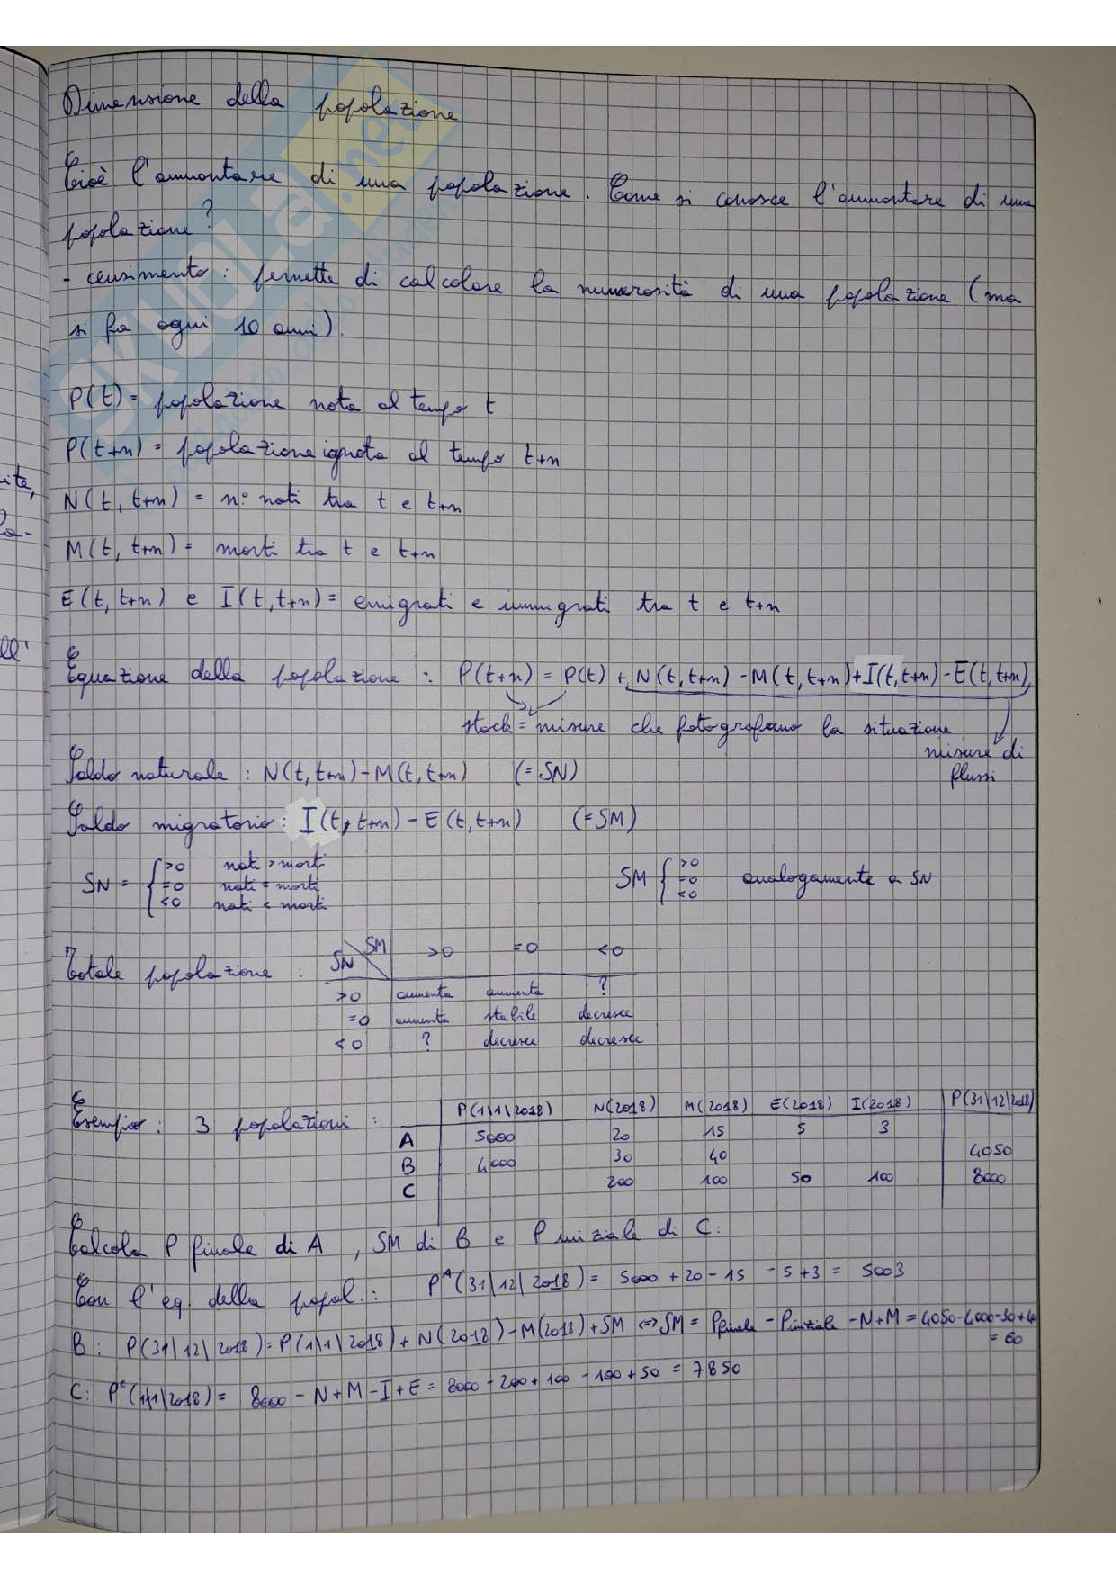 Dimensione della popolazione
Cioè l'ammontare di una popolazione. Come si conosce l'ammontare di una
popolazione?
- censimento: permette di calcolare la numerosità di una popolazione (ma
si fa ogni 10 anni).
P(t) = popolazione nota al tempo t
P(t+n) = popolazione ignota al tempo t+n
N(t, t+n) = n° nati tra t e t+n
M(t, t+n) = morti tra t e t+n
E(t, t+n) e I(t, t+n) = emigrati e immigrati tra t e t+n
Equazione della popolazione: P(t+n) = P(t) + N(t, t+n) - M(t, t+n) + I(t, t+n) - E(t, t+n)
stock = misure che fotografano la situazione
misure di
flussi
Saldo naturale: N(t, t+n) - M(t, t+n) (= SN)
Saldo migratorio: I(t, t+n) - E(t, t+n) (= SM)
SN = { >0 nati > morti
=0 nati = morti
<0 nati < morti
SM { >0
=0 analogamente a SN
<0
Totale popolazione: SN \ SM >0 =0 <0
>0 aumenta aumenta ?
=0 aumenta stabile decresce
<0 ? decresce decresce
Esempio: 3 popolazioni: P(1\1\2018) N(2018) M(2018) E(2018) I(2018) P(31\12\2018)
A 5000 20 15 5 3
B 4000 30 40 4050
C 200 100 50 100 8000
Calcola P finale di A, SM di B e P iniziale di C.
Con l'eq. della popol.: P^A(31\12\2018) = 5000 + 20 - 15 - 5 + 3 = 5003
B: P(31\12\2018) = P(1\1\2018) + N(2018) - M(2018) + SM ⇔ SM = Pfinale - Piniziale - N + M = 4050 - 4000 - 30 + 40
= 60
C: P^C(1\1\2018) = 8000 - N + M - I + E = 8000 - 200 + 100 - 100 + 50 = 7850
ite,
ell'
SKUOLA.net